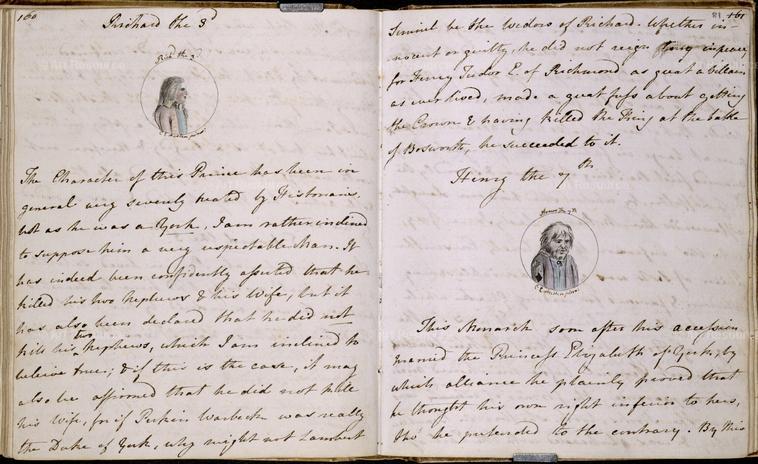 160
Richard the 3d
Richd the 3d
The Character of this Prince has been in
general very severely treated by Historians,
but as he was a York, I am rather inclined
to suppose him a very respectable Man. It
has indeed been confidently asserted that he
killed his two Nephews & his Wife, but it
has also been declared that he did not
kill his two Nephews, which I am inclined to
beleive true; & if this is the case, it may
also be affirmed that he did not kill
his Wife, for if Perkin Warbeck was really
the Duke of York, why might not Lambert
161
Simnel be the Widow of Richard. Whether in-
nocent or guilty, he did not reign long in peace,
for Henry Tudor E. of Richmond as great a Villain
as ever lived, made a great fuss about getting
the Crown & having killed the King at the battle
of Bosworth, he succeeded to it.
Henry the 7th
Henry the 7th
This Monarch soon after his accession
married the Princess Elizabeth of York, by
which alliance he plainly proved that
he thought his own right inferior to hers,
tho' he pretended to the contrary. By this